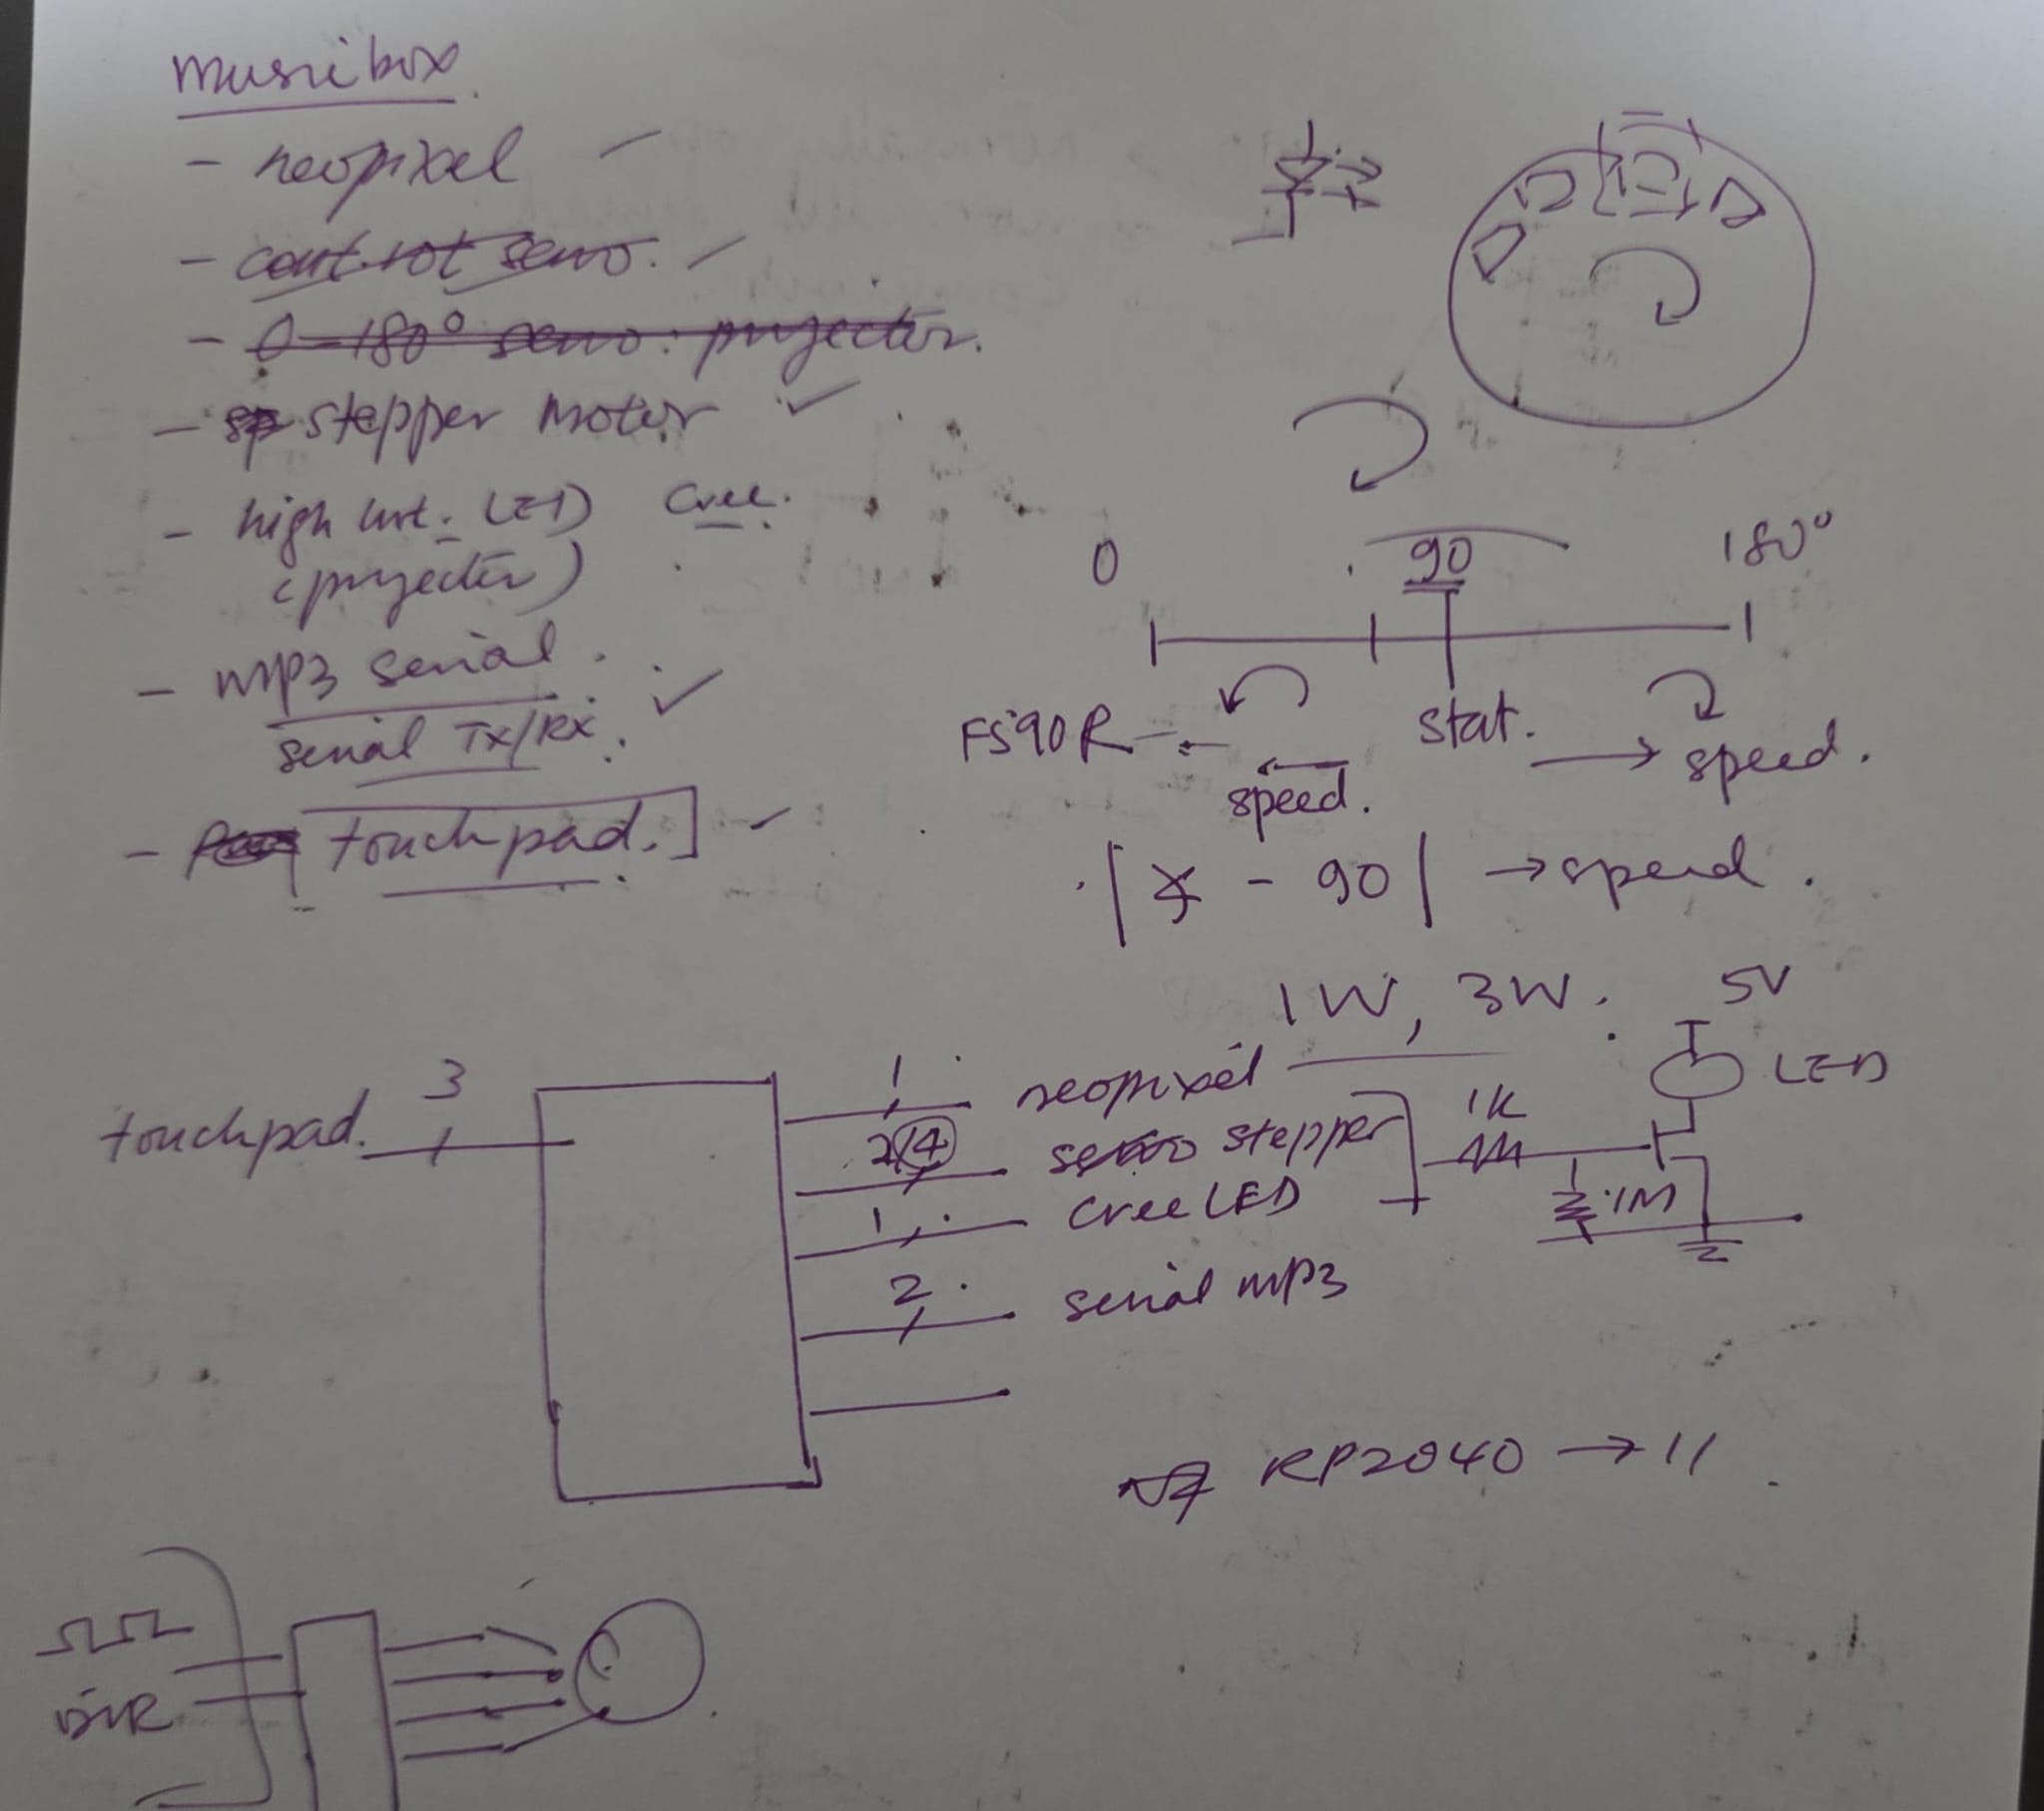 music box
- neopixel ✓
- cont. rot servo. ✓
- 0-180° servo: projector.
- stepper motor ✓
- high int. LED Cree.
(projector)
- mp3 serial.
serial Tx/Rx. ✓
- [touchpad.] ✓
0 90 180°
FS90R
stat.
speed.
speed.
|x - 90| → speed.
1W, 3W.
5V
LED
1K
1M
touchpad. 3
1 neopixel
2/4 servo stepper
1 Cree LED
2 serial mp3
RP2040 → 11
DIR